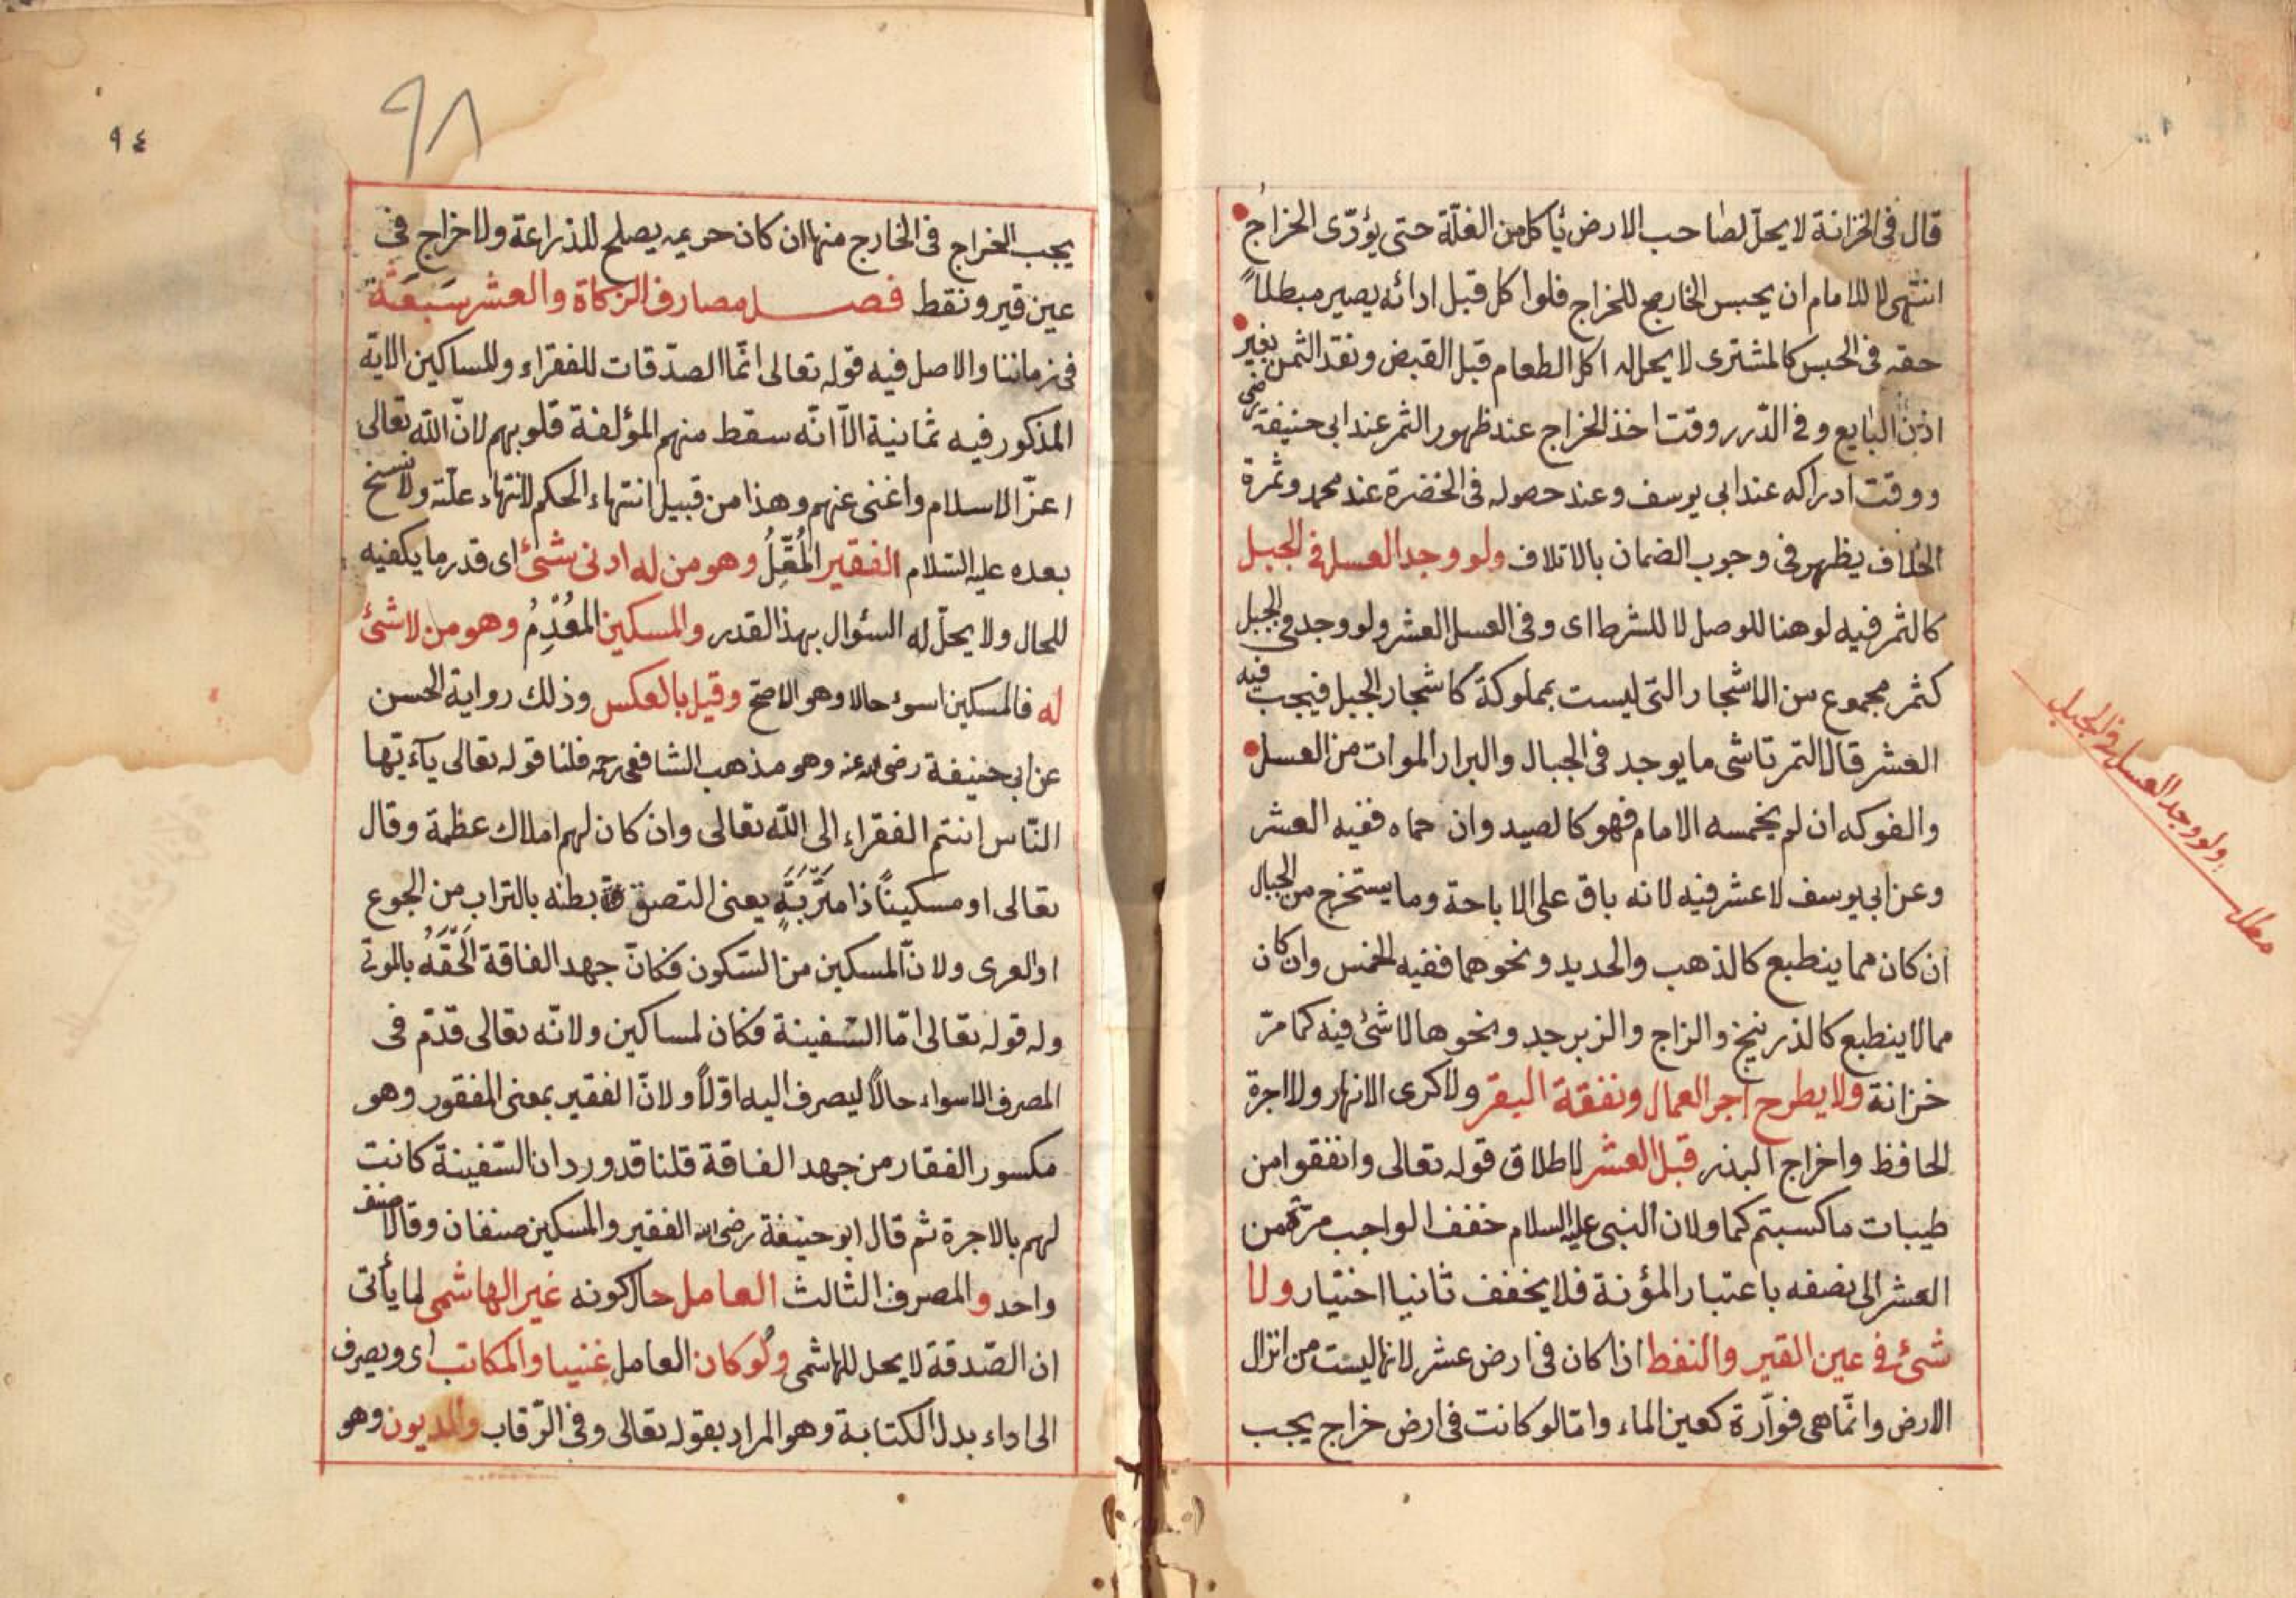 قال فى الخزانة لا يحلّ لصاحب الارض يأكل من الغلّة حتى يؤدّى الخراج
انتهى لا للامام ان يحبس الخارج للخراج فلو اكل قبل ادائه يصير مبطلاً
حقه فى الحبس كالمشترى لا يحل له اكل الطعام قبل القبض ونقد الثمن بغير
اذن البايع وفى الدّرر وقت اخذ الخراج عند ظهور الثمر عند ابى حنيفة رضى
ووقت ادراكه عند ابى يوسف وعند حصوله فى الخضرة عند محمد وثمرة
الخلاف يظهر فى وجوب الضمان بالاتلاف ولو وجد العسل فى الجبل
كالثمر فيه لو هنا للوصل لا للشرط اى وفى العسل العشر ولو وجد فى الجبل
كثمر مجموع من الاشجار التى ليست بمملوكة كاشجار الجبل فيجب فيه
العشر قال التمرتاشى ما يوجد فى الجبال والبرار الموات من العسل
والفوكه ان لم يخمسه الامام فهو كالصيد وان حماه ففيه العشر
وعن ابى يوسف لا عشر فيه لانه باق على الاباحة وما يستخرج من الجبال
ان كان مما ينطبع كالذهب والحديد ونحوهما ففيه الخمس وان كان
مما لا ينطبع كالذرنيخ والزاج والزبرجد ونحوها لا شئ فيه كما مرّ
خزانة ولا يطرح اجر العمال ونفقة البقر ولا كرى الانهار ولا اجرة
الحافظ واخراج البذر قبل العشر لاطلاق قوله تعالى وانفقوا من
طيبات ما كسبتم كما ولان النبى عليه السلام خفف الواجب مرّة من
العشر الى نصفه باعتبار المؤنة فلا يخفف ثانيا اختيار ولا
شئ فى عين القير والنفط اذا كان فى ارض عشر لانها ليست من انزال
الارض وانّما هى فوّارة كعين الماء وامّا لو كانت فى ارض خراج يجب
ولو وجد العسل فى الجبل
مطلب
٩٤
٩٨
يجب الخراج فى الخارج منها ان كان حريمه يصلح للذراعة ولا خراج فى
عين قير ونقط فصل مصارف الزكاة والعشر سَبعَة
فى زماننا والاصل فيه قوله تعالى انّما الصدّقات للفقراء وللمساكين الاية
المذكور فيه ثمانية الّا انّه سقط منهم المؤلفة قلوبهم لانّ الله تعالى
اعزّ الاسلام واغنى عنهم وهذا من قبيل انتهاء الحكم لانتهاء علّته ولا نسخ
بعده عليه السّلام الفقير المُقِّلُ وهو من له ادنى شئ اى قدر ما يكفيه
للحال ولا يحلّ له السئوال بهذ القدر والمسكين المعُدِمُ وهو من لا شئ
له فالمسكين اسوء حالا وهو الاصح وقيل بالعكس وذلك رواية الحسن
عن ابى حنيفة رضى الله عنه وهو مذهب الشافعى رحمه فلنا قوله تعالى يآءيّها
النّاس انتم الفقراء الى الله تعالى وان كان لهم املاك عظمة وقال
تعالى او مسكيناً ذا متَرَبَةٍ يعنى التصق بطنه بالتراب من الجوع
او العرى ولانّ المسكين من السّكون فكانّ جهد الفاقة الحَقَهُ بالموتى
وله قوله تعالى امّا السّفينة فكان لمساكين ولانّه تعالى قدّم فى
المصرف الاسواء حالاً ليصرف اليه اوّلاً ولانّ الفقير بمعنى المفقور وهو
مكسور الفقار من جهد الفاقة قلنا قد ورد ان السّفينة كانت
لهم بالاجرة ثم قال ابو حنيفة رضى الله الفقير والمسكين صنفان وقالا صنف
واحد والمصرف الثالث العامل حال كونه غير الهاشمى لما يأتى
ان الصّدقة لا يحل للهاشمى ولو كان العامل غنيا والمكاتب اى ويصرف
الى اداء بدل الكتابة وهو المراد بقوله تعالى وفى الرّقاب والمديون وهو